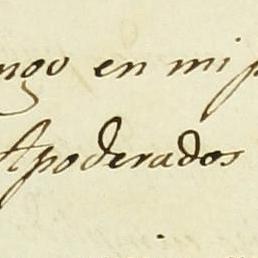 ngo en mi p
Apoderados